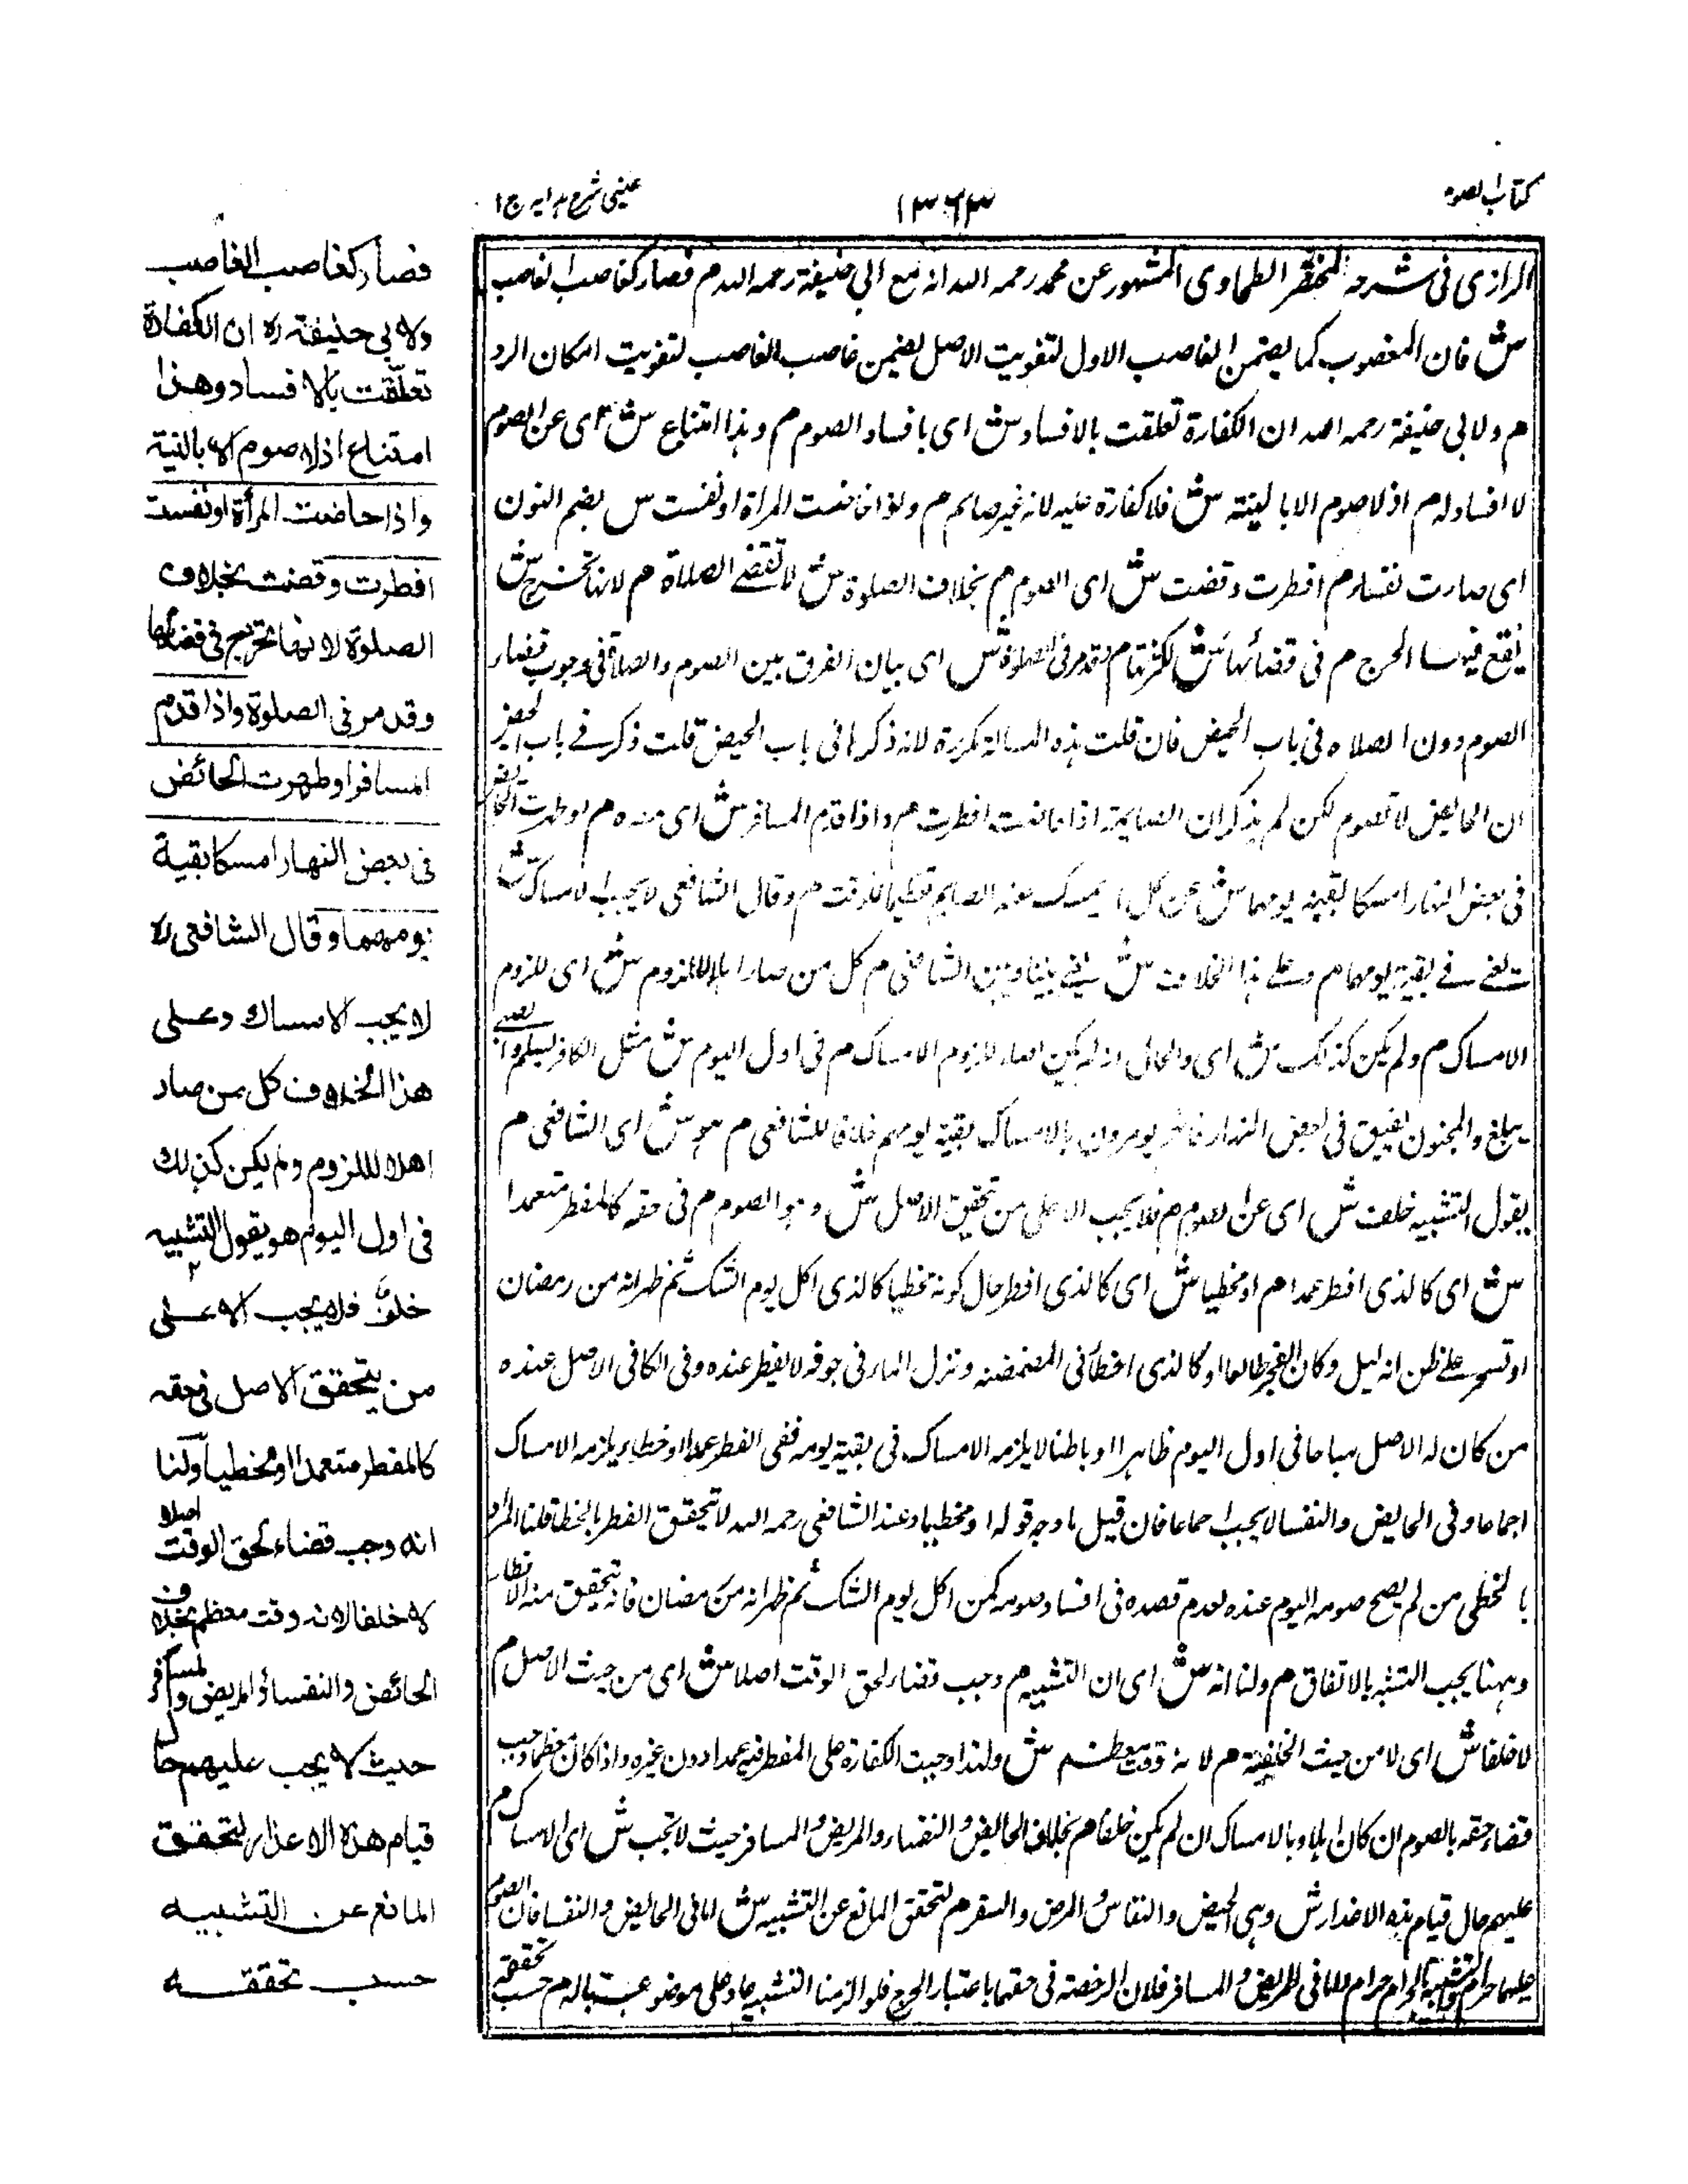 كتاب الصوم
١٣٦٣
عينى شرح هدايه ج ١
الرازى فى شرحه لمختصر الطحاوى المشهور عن محمد رحمه الله انه مع ابي حنيفة رحمه الله م فصار كغاصب الغاصب
ش فان المغصوب كما يضمن الغاصب الاول لتفويت الاصل يضمن غاصب الغاصب لتفويت امكان الرد
م ولابي حنيفة رحمه الله ان الكفارة تعلقت بالافساد ش اى بافساد الصوم م وهذا امتناع ش اى عن الصوم
لا افساد له م اذ لا صوم الا بالنية ش فلا كفارة عليه لانه غير صايم م واذا حاضت المراة او نفست س بضم النون
اى صارت نفساء م افطرت وقضت ش اى الصوم م بخلاف الصلوة ش لا تقضى الصلاة م لانها تحرج ش
يقع فيها الحرج م فى قضائها ش لكثرتها م وقد مر فى الصلوة ش اى بيان الفرق بين الصوم والصلاة فى وجوب قضاء
الصوم دون الصلاه فى باب الحيض فان قلت هذه المسالة مكررة لانه ذكرها فى باب الحيض قلت ذكر فے باب الحيض
ان الحايض لا تصوم لكن لم يذكر ان الصايمة اذا حاضت افطرت م واذا قدم المسافر ش اى مصره م او طهرت الحائض
فى بعض النهار امسكا بقية يومهما ش عن كل ما يمسك عنه الصايم تعظيما للوقت م وقال الشافعى لا يجب الامساك ش
يعنے فے بقية يومهما م وعلے هذا الخلاف ش يعنے بيننا وبين الشافعى م كل من صار اهلا للزوم ش اى للزوم
الامساك م ولم يكن كذلك ش اى والحال انه لم يكن اهلا للزوم الامساك م فى اول اليوم ش مثل الكافر يسلم والصبے
يبلغ والمجنون يفيق فى بعض النهار فانهم يومرون بالامساك بقية يومهم خلافا للشافعى م هو ش اى الشافعى م
يقول التشبيه خلف ش اى عن الصوم م فلا يجب الا على من تحقق الاصل ش وهو الصوم م فى حقه كالمفطر متعمدا
ش اى كالذى افطر عمدا م او مخطيا ش اى كالذى افطر حال كونه مخطيا كالذى اكل يوم الشك ثم ظهر انه من رمضان
او تسحر علے ظن انه ليل وكان الفجر طالعا او كالذى اخطأ فى المضمضه ونزل الماء فى جوفه لا يفطر عنده وفى الكافى الاصل عنده
من كان له الاصل مباحا فى اول اليوم ظاهرا او باطنا لا يلزمه الامساك فى بقية يومه ففى الفطر عمدا او خطاء يلزمه الامساك
اجماعا وفى الحايض والنفسا لا يجب اجماعا فان قيل ما وجه قوله او مخطيا وعند الشافعى رحمه الله لا تحقق الفطر بالخطا قلنا المراد
بالمخطى من لم يصح صومه اليوم عنده لعدم قصده فى افساد صومه كمن اكل يوم الشك ثم ظهر انه من رمضان فانه تحقق منه الافطار
وههنا يجب التشبه بالاتفاق م ولنا انه ش اى ان التشبيه م وجب قضاء لحق الوقت اصلا ش اى من حيث الاصل م
لا خلفا ش اى لا من حيث الخلفية م لانه وقت معظم ش ولهذا وجبت الكفارة على المفطر فيه عمدا دون غيره واذا كان معظما وجب
قضاء حقه بالصوم ان كان اهلا وبالامساك ان لم يكن خلفا م بخلاف الحايض والنفساء والمريض والمسافر حيث لا تجب ش اى الامساك م
عليهم حال قيام هذه الاعذار ش وهى الحيض والنفاس والمرض والسفر م لتحقق المانع عن التشبيه ش اما فى الحايض والنفسا فان الصوم
عليهما حرام والتشبيه بالحرام حرام اما فى المريض والمسافر فلان الرخصة فى حقهما باعتبار الحرج فلو الزمنا التشبيه عاد على موضوعه بالـ م حسب تحققه
فصار كغاصب الغاصب
ولابي حنيفة ره ان الكفارة
تعلقت بالافساد وهذا
امتناع اذ لا صوم الا بالنية
واذا حاضت المرأة او نفست
افطرت وقضت بخلاف
الصلوة لانها تحرج فى قضائها
وقد مر فى الصلوة واذا قدم
المسافر او طهرت الحائض
فى بعض النهار امسكا بقية
يومهما وقال الشافعى ره
لا يجب الامساك وعلى
هذا الخلاف كل من صار
اهلا للزوم ولم يكن كذلك
فى اول اليوم هو يقول التشبيه
خلف فلا يجب الا على
من يتحقق الاصل فى حقه
كالمفطر متعمدا او مخطيا ولنا
انه وجب قضاء لحق الوقت اصلا
لا خلفا لانه وقت معظم بخلاف
الحائض والنفساء والمريض والمسافر
حيث لا يجب عليهم حال
قيام هذه الاعذار لتحقق
المانع عن التشبيه
حسب تحققه